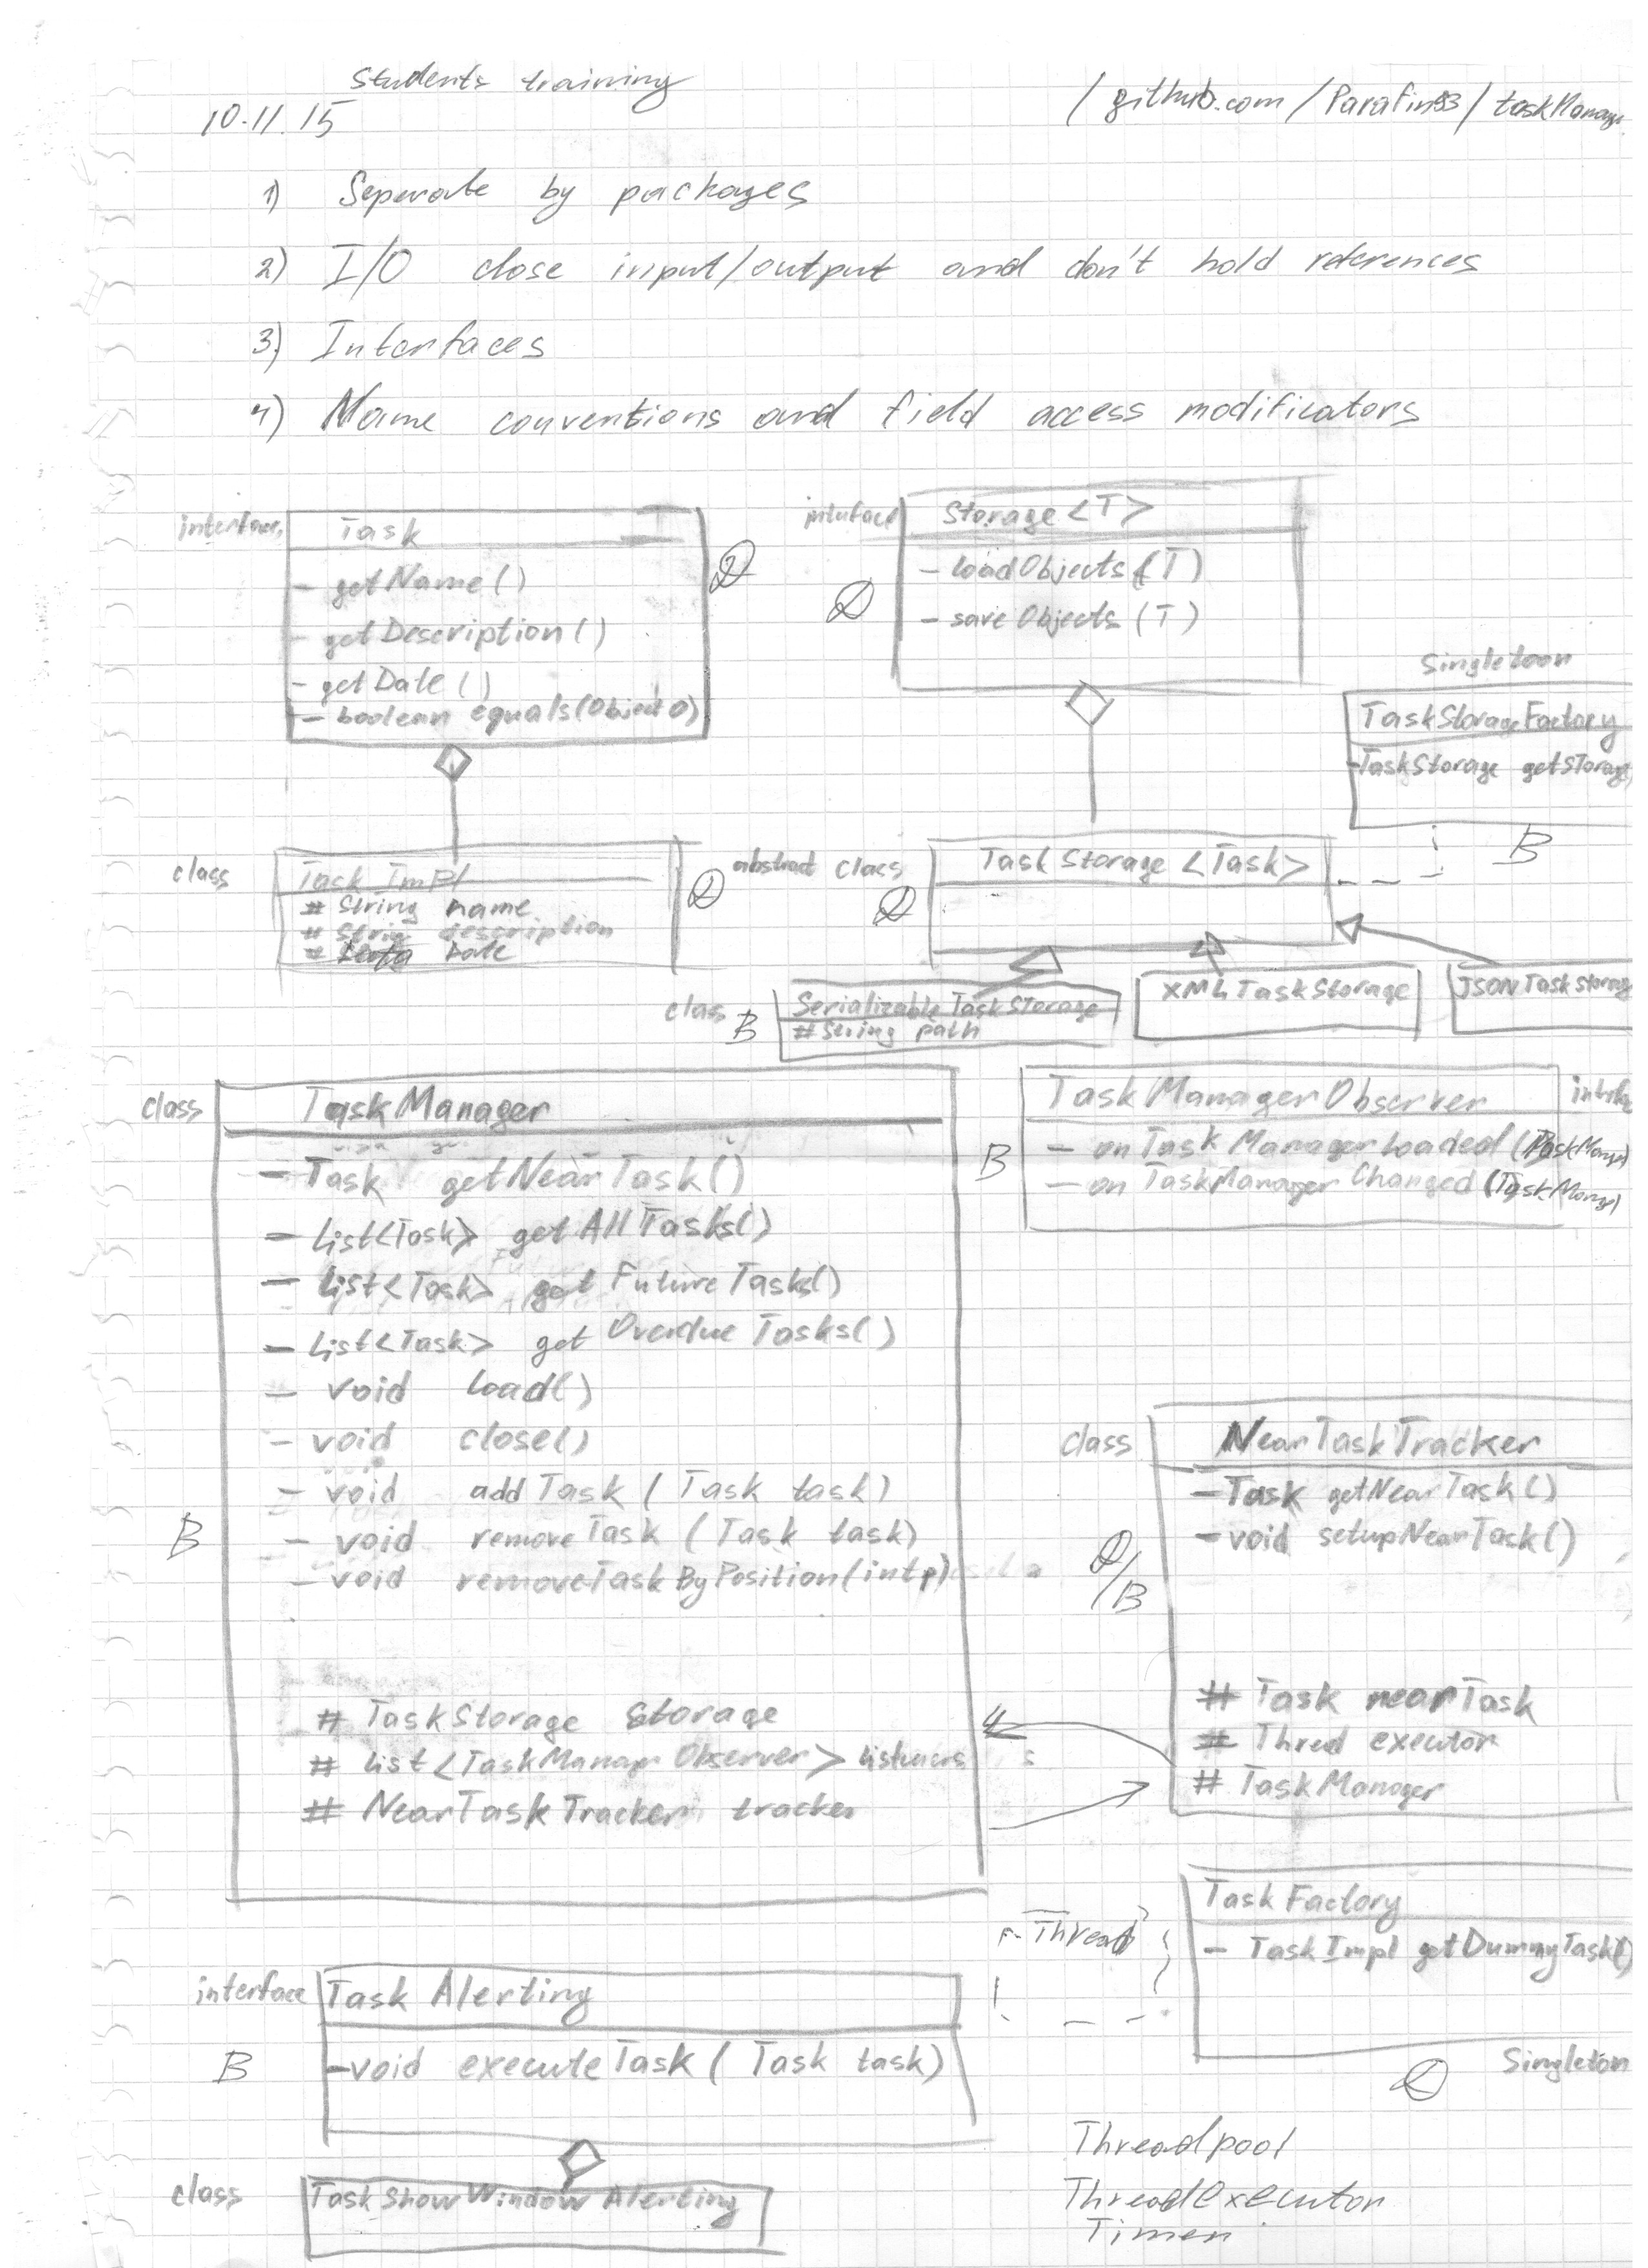 Students training
10.11.15
/github.com/Parafin83/taskManag
1) Seperate by packages
2) I/O close input/output and don't hold references
3) Interfaces
4) Name conventions and field access modificators
interface
Task
- getName()
- getDescription()
- getDate()
- boolean equals(Object o)
interface
Storage<T>
- loadObjects(T)
- saveObjects(T)
Singletoon
TaskStorageFactory
-TaskStorage getStorag
B
class
Task Impl
# String name
# String description
# Date
abstract class
TaskStorage <Task>
class
B
Serializable TaskStorage
# String path
XML TaskStorage
JSON TaskStorag
class
TaskManager
- Task getNearTask()
- List<Task> getAllTasks()
- List<Task> get Future Tasks()
- List<Task> get Overdue Tasks()
- void load()
- void close()
- void addTask (Task task)
B
- void removeTask (Task task)
- void removeTaskByPosition(int p)
# TaskStorage Storage
# List<TaskManagr Observer> listeners
# NearTaskTracker tracker
TaskManagerObserver
B
- on TaskManagerLoaded (TaskManager)
- on TaskManager Changed (TaskManger)
class
NearTaskTracker
-Task getNearTask()
-void setupNearTask()
/B
# Task nearTask
# Thred executor
# TaskManager
Thread
Task Factory
- TaskImpl getDummyTask()
Singleton
interface
Task Alerting
B
-void executeTask ( Task task)
class
TaskShowWindow Alerting
Threadpool
ThreadExecutor
Timer